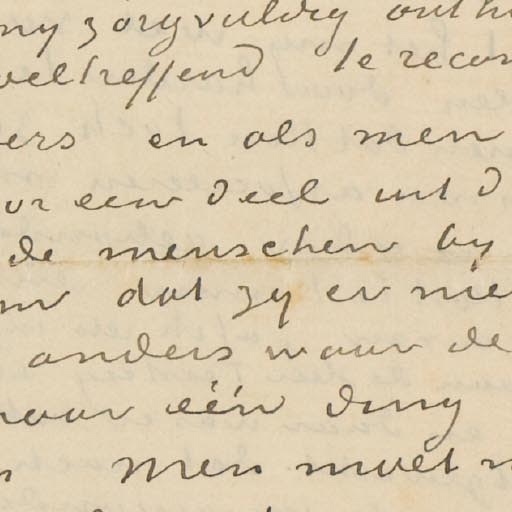 my zorgvuldig onth
weltreffend te recon
ers en als men
or een deel uit d
de menschen by
om dat zy er nie
anders waar de
naar één ding
n Men moet n